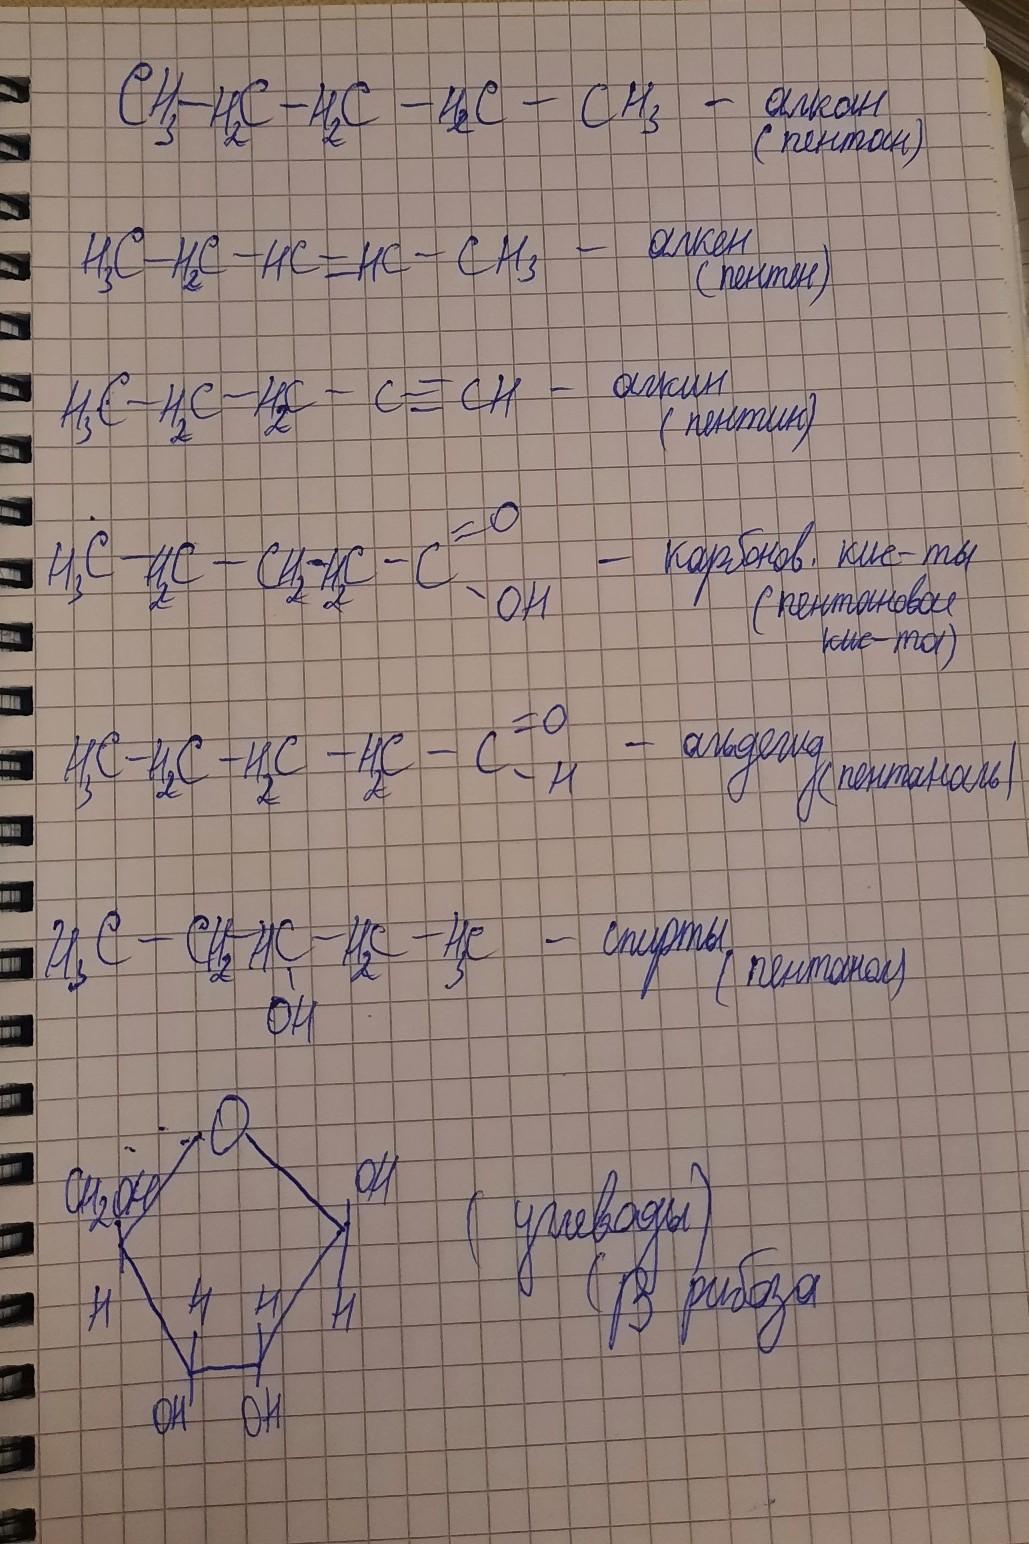 CH₃–H₂C–H₂C–H₂C–CH₃ – алкан
(пентан)
H₃C–H₂C–HC=HC–CH₃ – алкен
(пентен)
H₃C–H₂C–H₂C–C≡CH – алкин
(пентин)
=O
H₃C–H₂C–CH₂–H₂C–C – карбонов. кис-ты
OH (пентановая
кис-та)
=O
H₃C–H₂C–H₂C–H₂C–C – альдегид
H (пентаналь)
H₃C–CH₂–HC–H₂C–H₃C – спирты
(пентанол)
OH
O
CH₂OH OH
(углеводы)
H H H H (β рибоза
OH OH